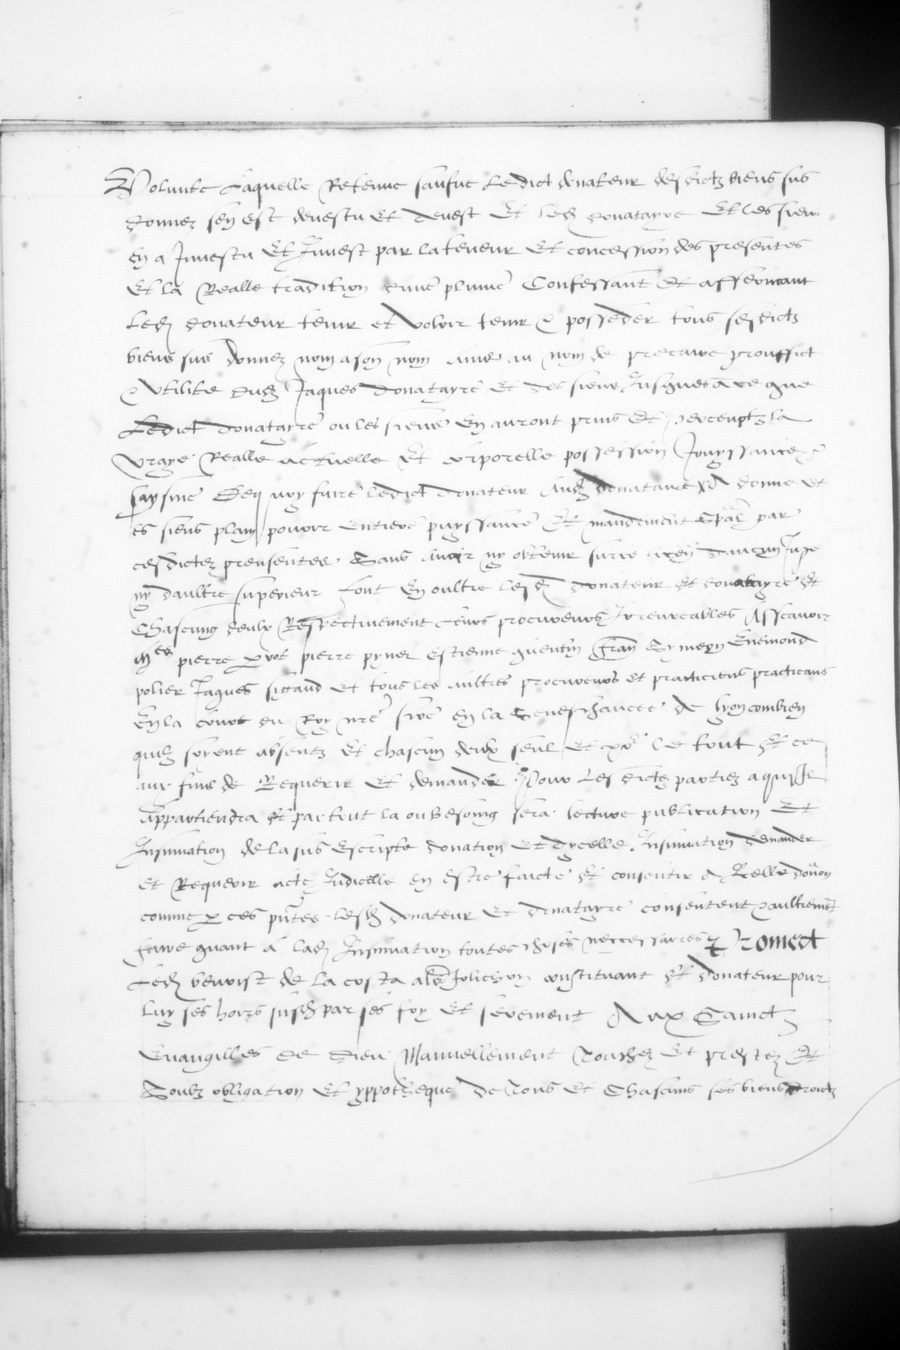 Volunte Laquelle Retenue saufue Ledict donateur desdictz biens sus
donnez sen est devestu Et devest Et lesd donatayre Et les siens
en a Jnvestu Et Jnvest par la teneur Et concession des presentes
Et la Realle tradition dune plume Confessant Et afferment
Led donateur tenir et voloir tenir & posseder tous sesdictz
biens sus donnez non a son nom ains au nom de precaire prouffict
& utilite dud Jaques donatayre Et des siens Jusques a ce que
Ledict donatayre ou les siens En auront prins Et perceuptz la
vraye Realle actuelle Et corporelle possession Jouyssance &
saysine Deq uoy faire ledict donateur Aud donataire donne et
es siens plain pouvoir entiere puyssance Et mandement spal par
cesdictes presentes Sans ny obtenir Juge
ny daultre superieur font En oultre lesd donateur et donatayre Et
Chascung deulx Respectivement leurs procureurs Jrrevocables Asscavoir
mes pierre pvot pierre pyner Estienne guentin fran Eymeyn Enemond
polier Jaques sigaud et tous les aultres procureurs et practiciens practicans
En la court du Roy nre sire En la Seneschaucee de lyon combien
quilz soyent absentz Et chascun deulx seul Et po le tout Et ce
aux fins de Requerir Et demander Pour Les dictes parties a qui Jl
Appartiendra Et partout la ou besoing sera lecture publication Et
Jnsinuation de la sus Escripte donation Et dycelle Jnsinuation demander
et Requerir acte Judicelle en Estre faicte Et consentir a Jcelle donon
comme p ces pntes lesd donateur Et donatayre consentent & aultrement
faire quant a lad Jnsinuation toutes choses neccessaires Promect
Led benoist de la costa als Jolichon constituant Et donateur pour
luy ses hoirs susd par ses foy Et serement Aux Sainctz
Euangilles de Dieu Manuellement Touchez Et prestez Et
Soubz obligation Et yppotheque de Tous Et Chascuns ses biens droictz